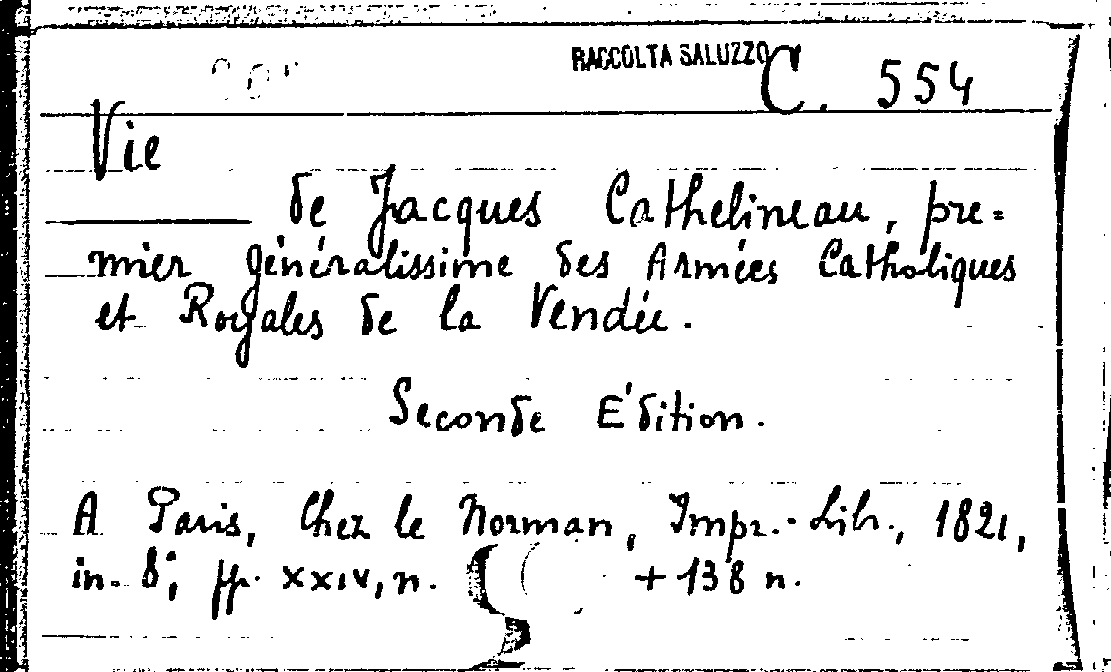 RACCOLTA SALUZZO C. 554
Vie
de Jacques Cathelineau, pre=
mier généralissime des Armées Catholiques
et Royales de la Vendée.
Seconde Édition.
A Paris, Chez le Norman, Impr.-Libr., 1821,
in-8°; pp. XXIV, n. + 138 n.